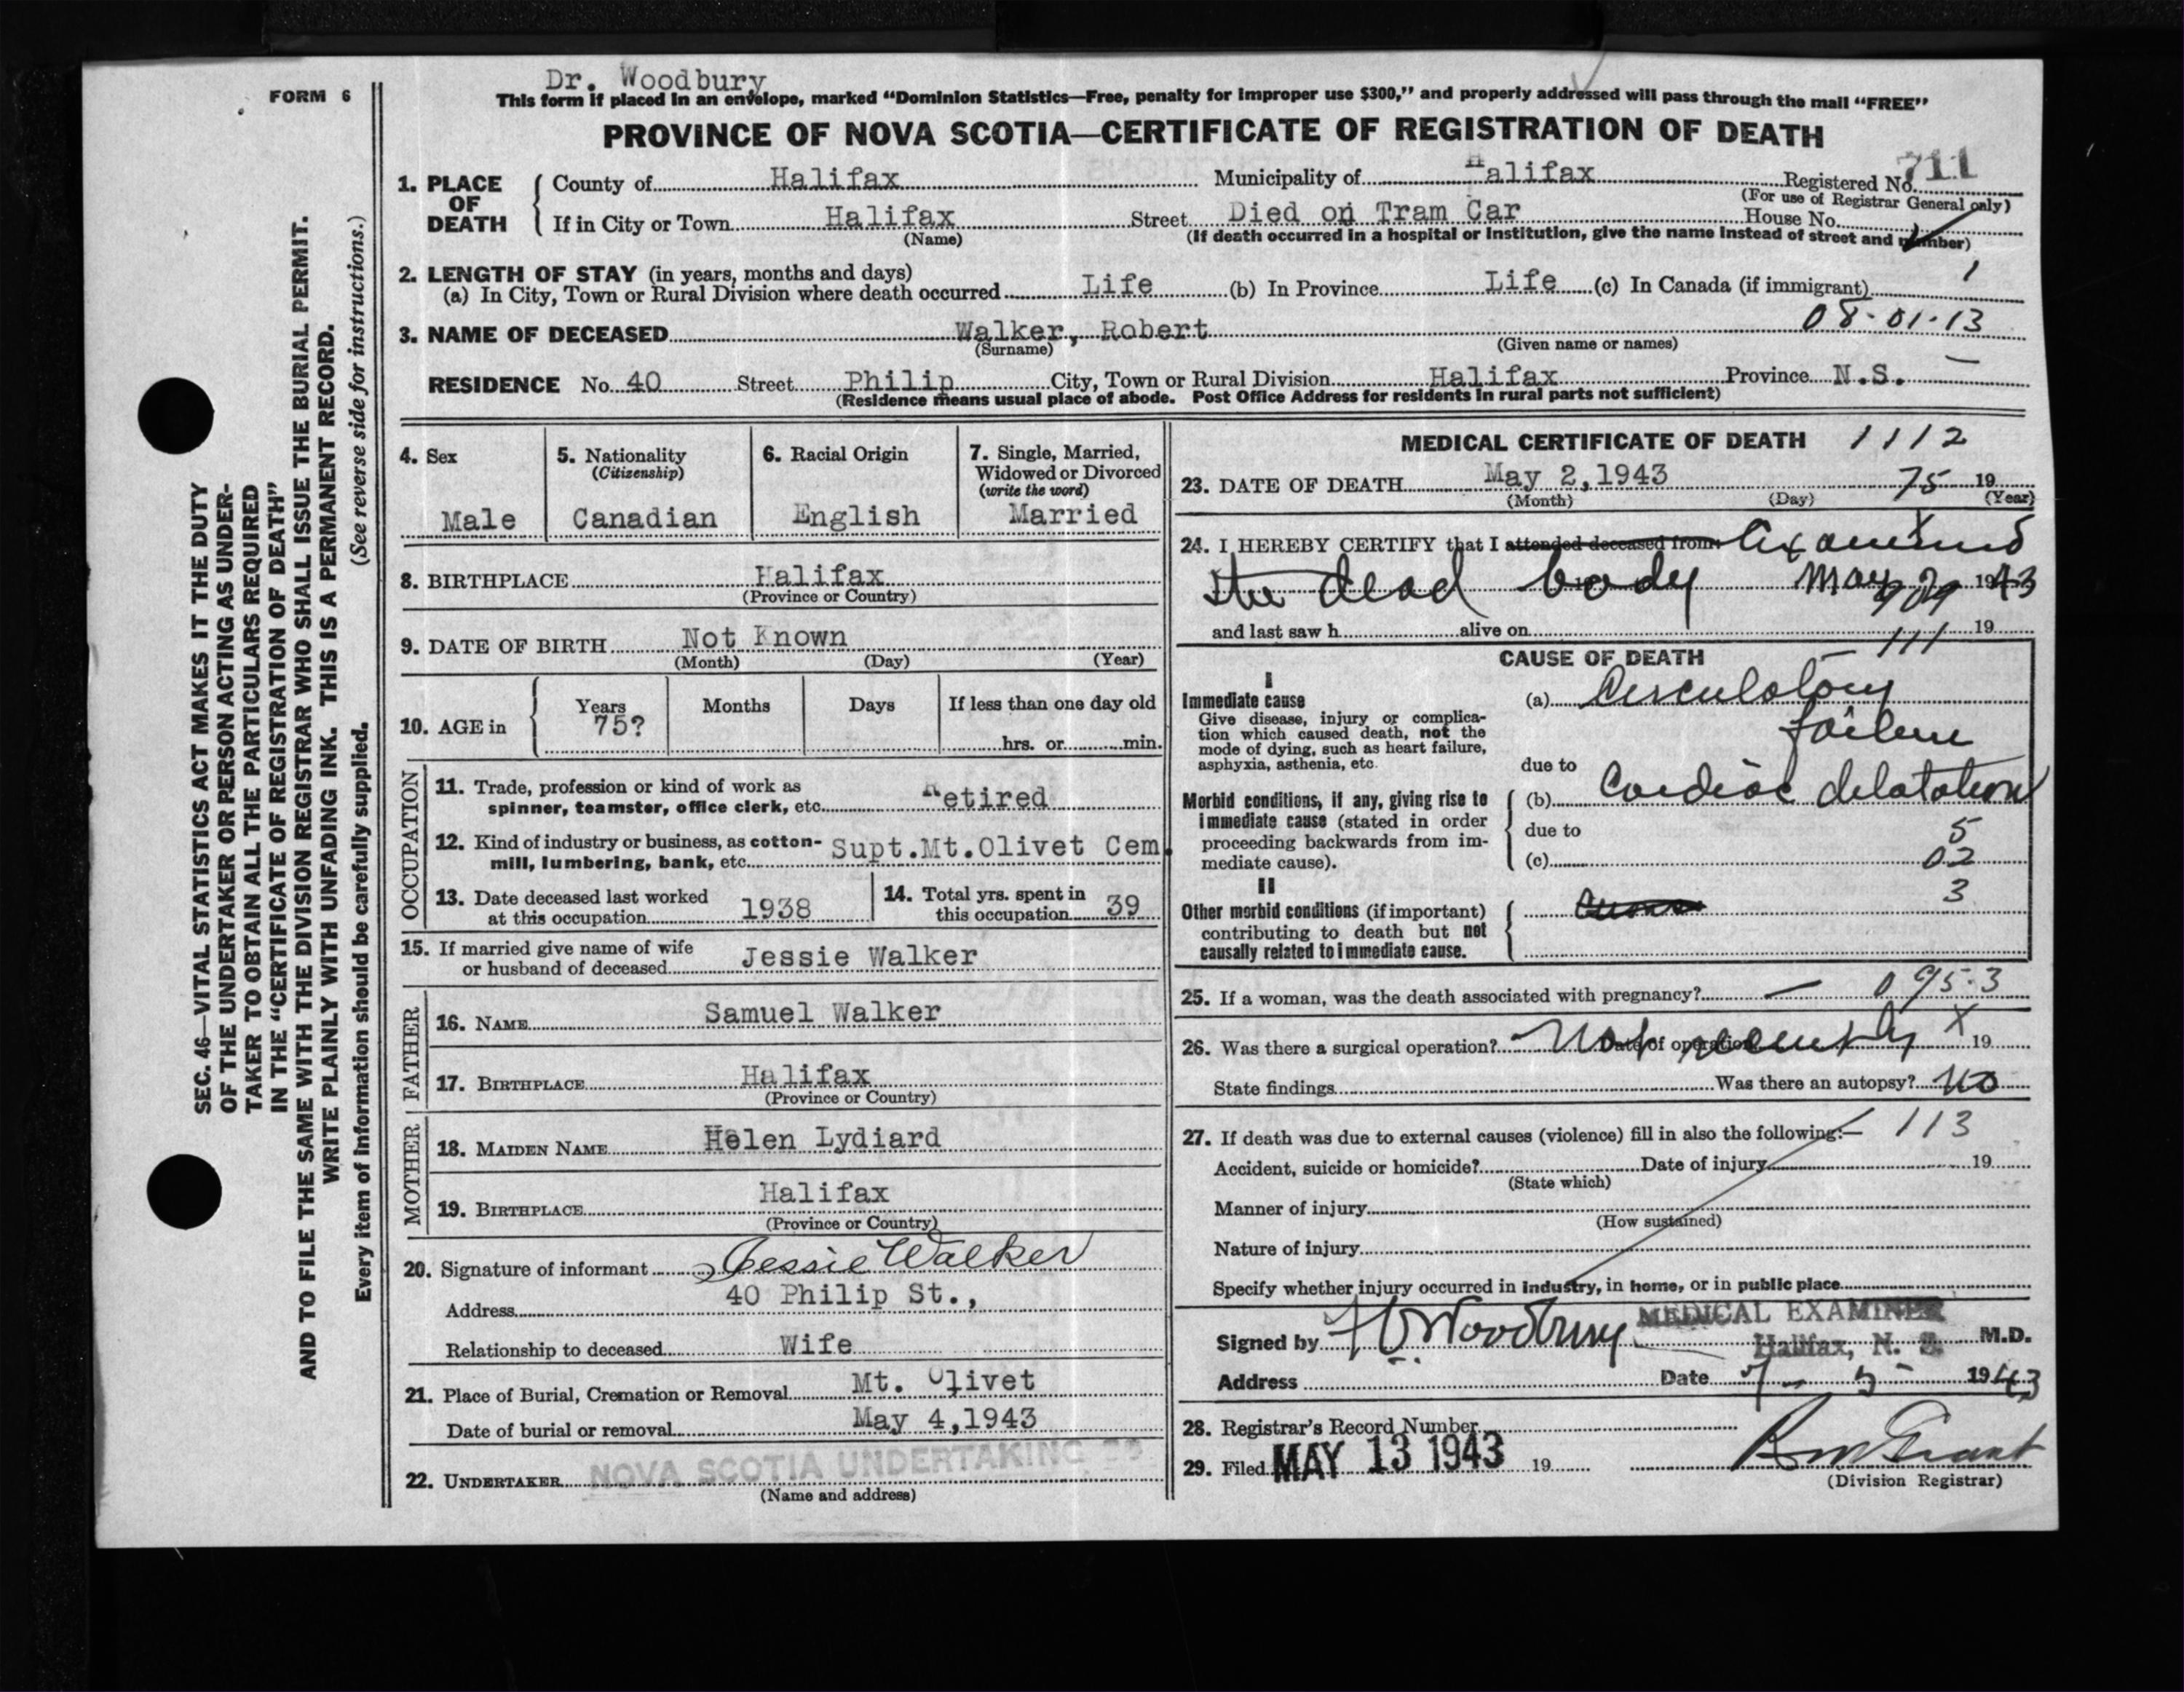 Dr. Woodbury
FORM 6
This form if placed in an envelope, marked "Dominion Statistics—Free, penalty for improper use $300," and properly addressed will pass through the mail "FREE"
PROVINCE OF NOVA SCOTIA—CERTIFICATE OF REGISTRATION OF DEATH
SEC. 46—VITAL STATISTICS ACT MAKES IT THE DUTY
OF THE UNDERTAKER OR PERSON ACTING AS UNDER-
TAKER TO OBTAIN ALL THE PARTICULARS REQUIRED
IN THE "CERTIFICATE OF REGISTRATION OF DEATH"
AND TO FILE THE SAME WITH THE DIVISION REGISTRAR WHO SHALL ISSUE THE BURIAL PERMIT.
WRITE PLAINLY WITH UNFADING INK. THIS IS A PERMANENT RECORD.
Every item of information should be carefully supplied. (See reverse side for instructions.)
1. PLACE OF DEATH
County of Halifax Municipality of Halifax Registered No. 711
(For use of Registrar General only)
If in City or Town Halifax Street Died on Tram Car House No.
(Name) (If death occurred in a hospital or institution, give the name instead of street and number)
2. LENGTH OF STAY (in years, months and days)
(a) In City, Town or Rural Division where death occurred Life (b) In Province Life (c) In Canada (if immigrant) 1
3. NAME OF DECEASED Walker, Robert 08-01-13
(Surname) (Given name or names)
RESIDENCE No. 40 Street Philip City, Town or Rural Division Halifax Province N.S.
(Residence means usual place of abode. Post Office Address for residents in rural parts not sufficient)
4. Sex
Male
5. Nationality
(Citizenship)
Canadian
6. Racial Origin
English
7. Single, Married,
Widowed or Divorced
(write the word)
Married
8. BIRTHPLACE Halifax
(Province or Country)
9. DATE OF BIRTH Not Known
(Month) (Day) (Year)
10. AGE in
Years Months Days If less than one day old
75?
hrs. or min.
OCCUPATION
11. Trade, profession or kind of work as
spinner, teamster, office clerk, etc. Retired
12. Kind of industry or business, as cotton-
mill, lumbering, bank, etc. Supt.Mt.Olivet Cem.
13. Date deceased last worked
at this occupation 1938
14. Total yrs. spent in
this occupation 39
15. If married give name of wife
or husband of deceased Jessie Walker
FATHER
16. NAME Samuel Walker
17. BIRTHPLACE Halifax
(Province or Country)
MOTHER
18. MAIDEN NAME Helen Lydiard
19. BIRTHPLACE Halifax
(Province or Country)
20. Signature of informant Jessie Walker
Address 40 Philip St.,
Relationship to deceased Wife
21. Place of Burial, Cremation or Removal Mt. Olivet
Date of burial or removal May 4,1943
22. UNDERTAKER NOVA SCOTIA UNDERTAKING
(Name and address)
MEDICAL CERTIFICATE OF DEATH 1112
23. DATE OF DEATH May 2,1943 75 19
(Month) (Day) (Year)
24. I HEREBY CERTIFY that I attended deceased from: Examined
the dead body May 2 1943
and last saw h alive on 19
111
CAUSE OF DEATH
I
Immediate cause
Give disease, injury or complica-
tion which caused death, not the
mode of dying, such as heart failure,
asphyxia, asthenia, etc.
(a) Circulatory
failure
due to
Morbid conditions, if any, giving rise to
immediate cause (stated in order
proceeding backwards from im-
mediate cause).
(b) Cardiac dilatation
due to 5
(c) 02
II 3
Other morbid conditions (if important)
contributing to death but not
causally related to immediate cause.
25. If a woman, was the death associated with pregnancy? — 095.3
26. Was there a surgical operation? Not recently Date of operation X 19
State findings Was there an autopsy? No
27. If death was due to external causes (violence) fill in also the following:— 113
Accident, suicide or homicide? Date of injury 19
(State which)
Manner of injury
(How sustained)
Nature of injury
Specify whether injury occurred in industry, in home, or in public place
Signed by Woodbury MEDICAL EXAMINER
Halifax, N. S. M.D.
Address Date 7-5- 1943
28. Registrar's Record Number
29. Filed MAY 13 1943 19 Grant
(Division Registrar)